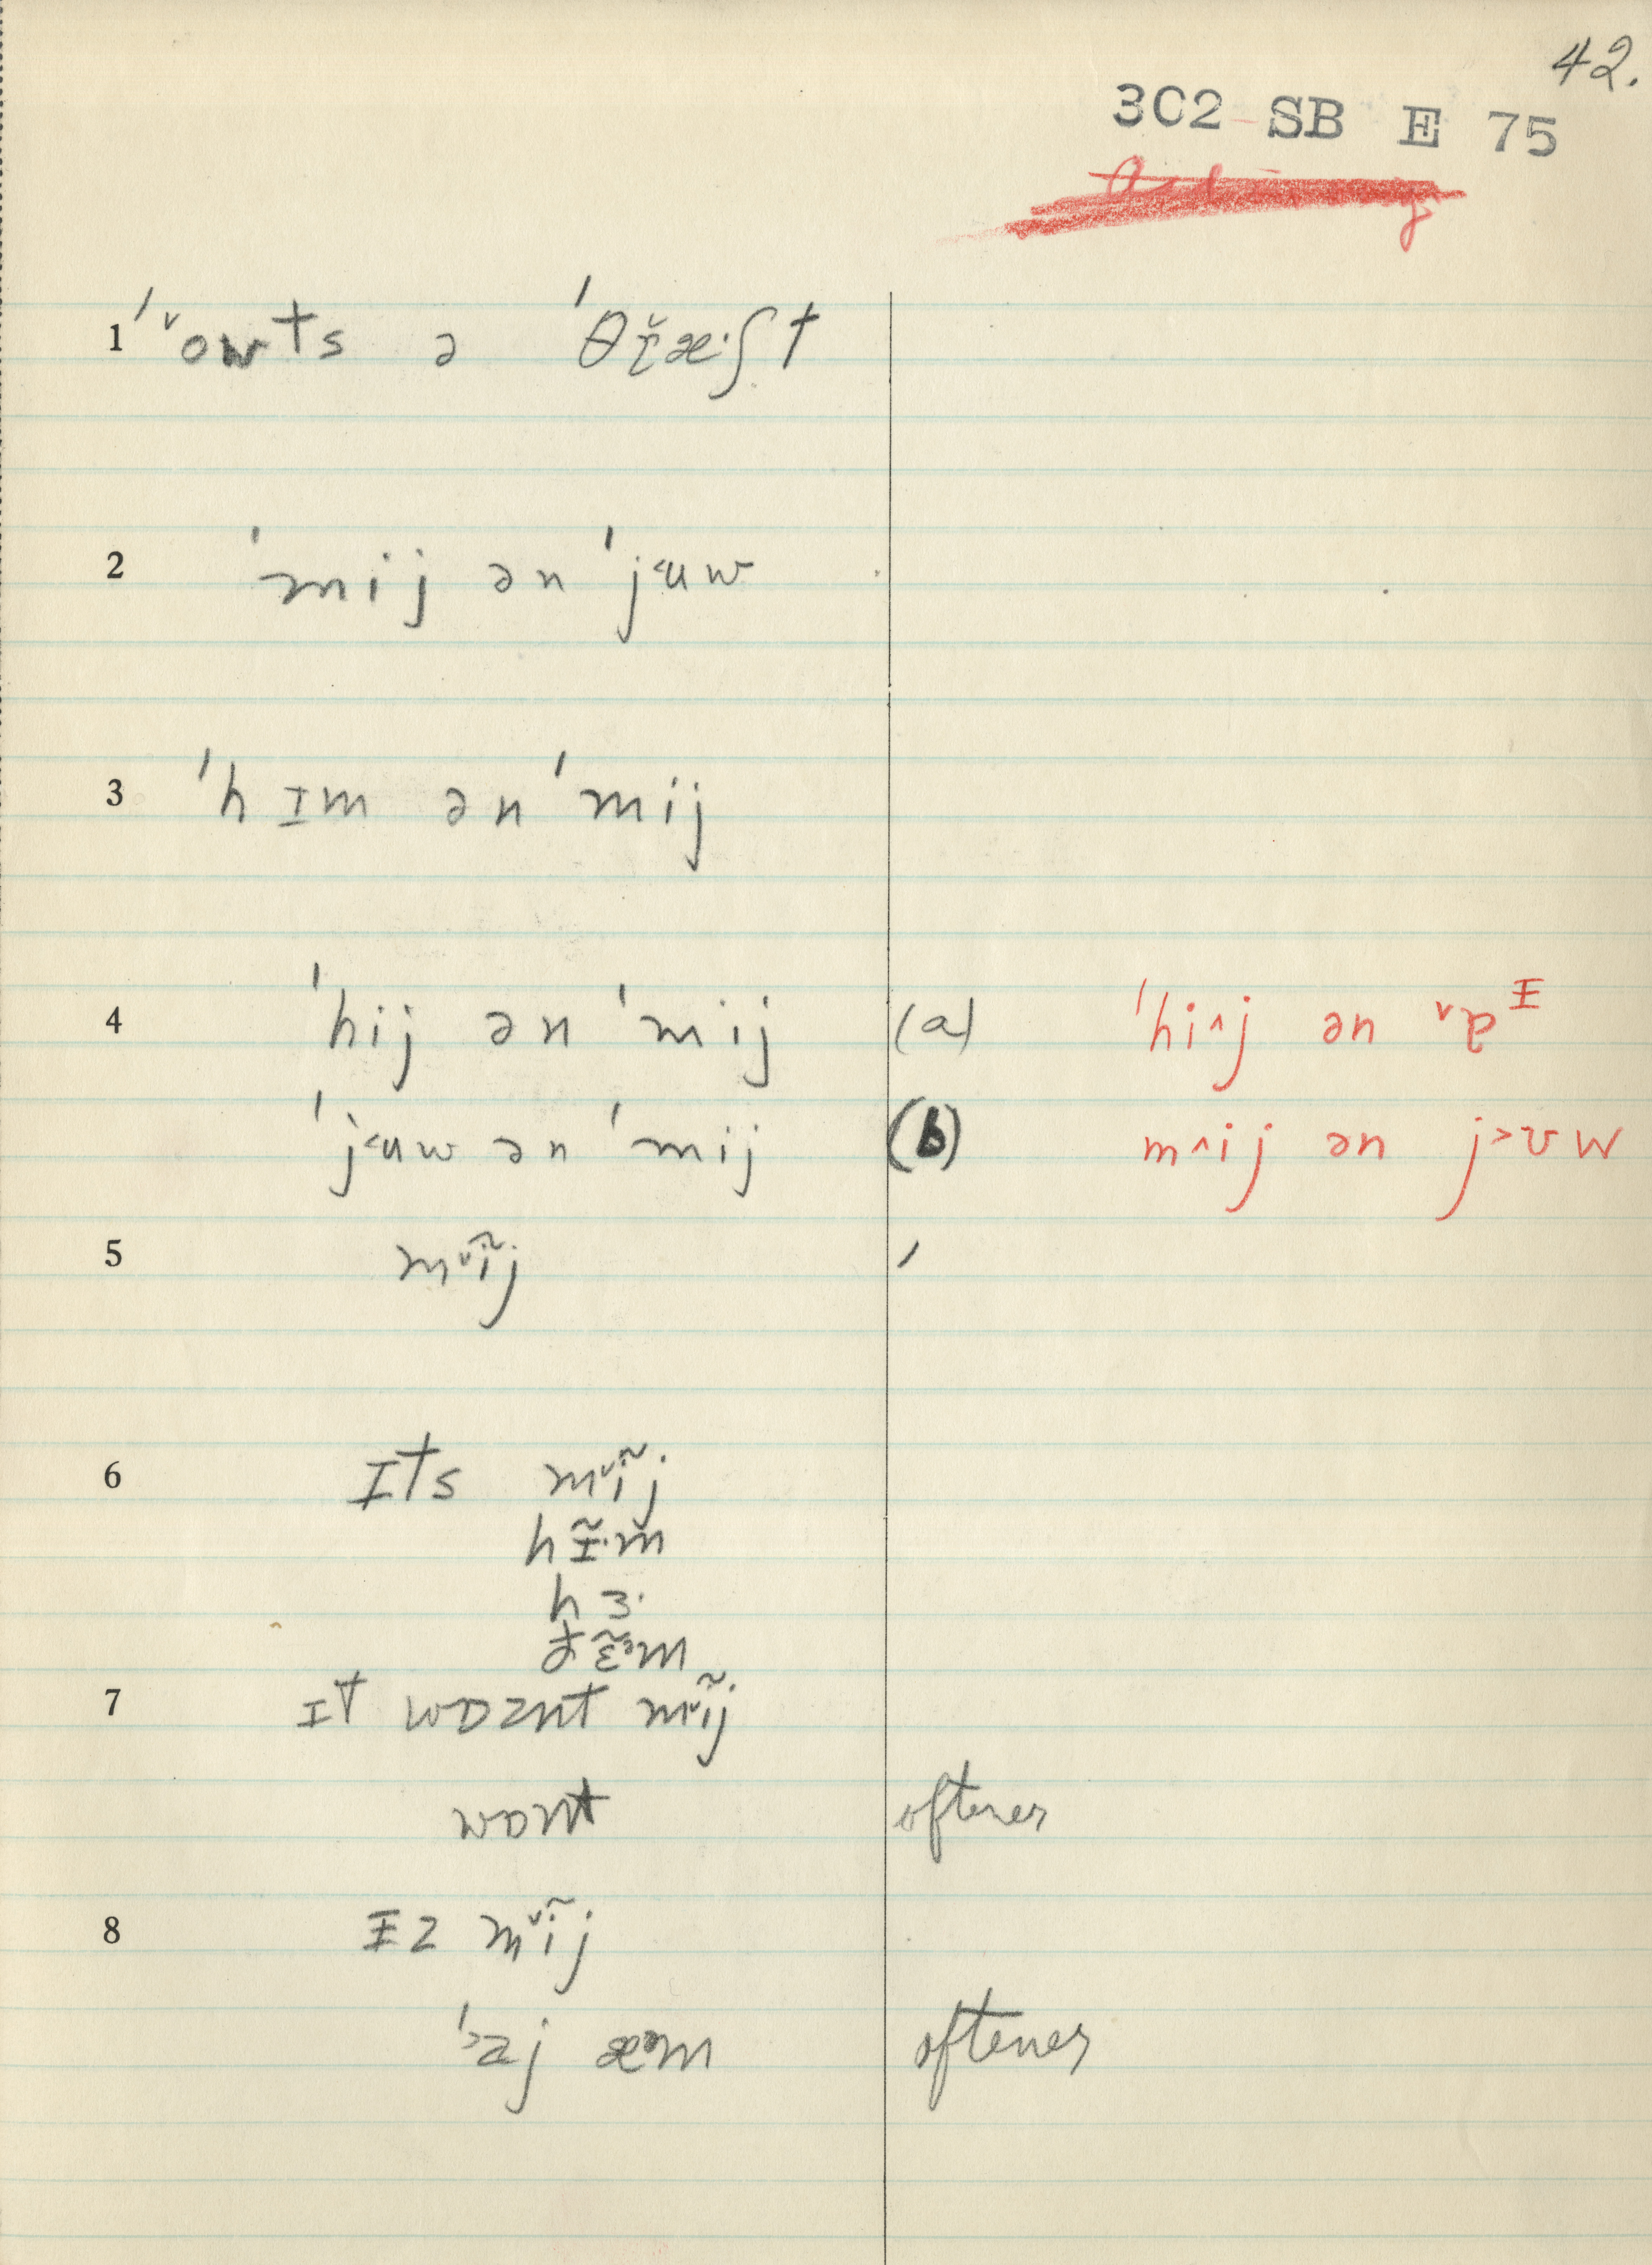 42.
3C2 SB E 75
1 ˈ˅owts ə ˈθɽ̆æ·ʃt
2 ˈmij ən ˈj˂uw
3 ˈhɪm ən ˈmij
4 ˈhij ən ˈmij (a) ˈhi˄j ən ˅ɐᵻ
ˈj˂uw ən ˈmij (b) m˄ij ən j˃ʊw
5 m˅ĩj ˈ
6 ɪts m˅ĩj
hɪ̃·m
hɜ·
ðɛ̃ᵊm
7 ɪt wɒznt m˅ĩj
wɒnt oftener
8 ᵻz m˅ĩj
ˈ˃aj æᵊm oftener